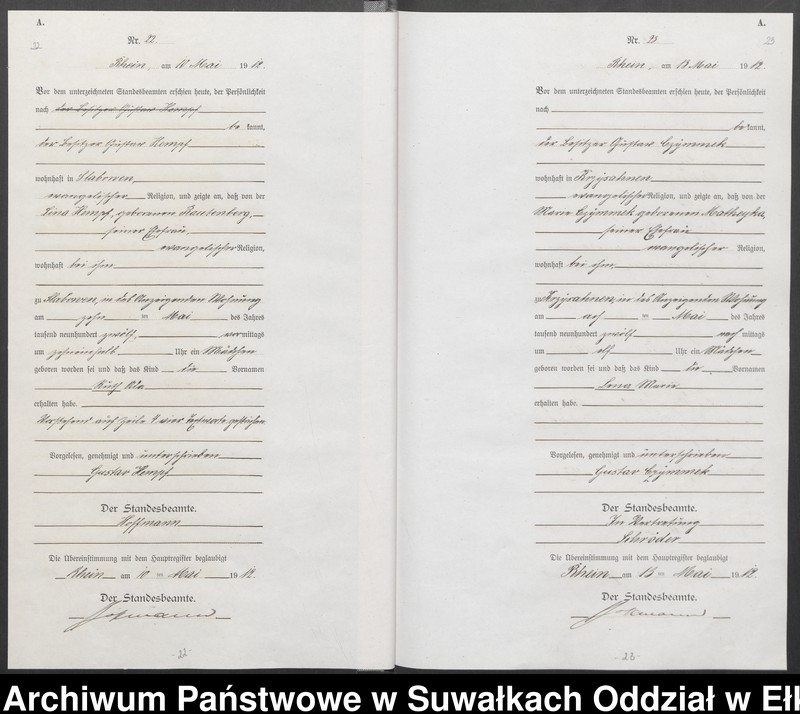 A.
22
Nr. 22
Rhein, am 10 Mai 1912.
Vor dem unterzeichneten Standesbeamten erschien heute, der Persönlichkeit
nach der Besitzer Gustav Kempf
be kannt,
der Besitzer Gustav Kempf
wohnhaft in Slabowen,
evangelischer Religion, und zeigte an, daß von der
Lina Kempf, geborenen Rautenberg,
seiner Ehefrau,
evangelischer Religion,
wohnhaft bei ihm,
zu Slabowen, in des Anzeigenden Wohnung
am zehn im Mai des Jahres
tausend neunhundert zwölf, vormittags
um zehneinhalb Uhr ein Mädchen
geboren worden sei und daß das Kind die Vornamen
Ruth
erhalten habe.
Vorstehend auf Zeile 4 vier gestrichen
Vorgelesen, genehmigt und unterschrieben
Gustav Kempf
Der Standesbeamte.
Hoffmann
Die Übereinstimmung mit dem Hauptregister beglaubigt
Rhein am 10 ten Mai 1912.
Der Standesbeamte.
Hoffmann
-22-
A.
23
Nr. 23
Rhein, am 13 Mai 1912.
Vor dem unterzeichneten Standesbeamten erschien heute, der Persönlichkeit
nach
be kannt,
der Besitzer Gustav Czymmek
wohnhaft in Krzysahnen
evangelischer Religion, und zeigte an, daß von der
Marie Czymmek geborenen Matheyka,
seiner Ehefrau
evangelischer Religion,
wohnhaft bei ihm,
zu Krzysahnen, in des Anzeigenden Wohnung
am acht ten Mai des Jahres
tausend neunhundert zwölf nach mittags
um elf Uhr ein Mädchen
geboren worden sei und daß das Kind die Vornamen
Lena Marie
erhalten habe.
Vorgelesen, genehmigt und unterschrieben
Gustav Czymmek
Der Standesbeamte.
In Vertretung
Schröder
Die Übereinstimmung mit dem Hauptregister beglaubigt
Rhein am 13 ten Mai 1912.
Der Standesbeamte.
-23-
Archiwum Państwowe w Suwałkach Oddział w Eł